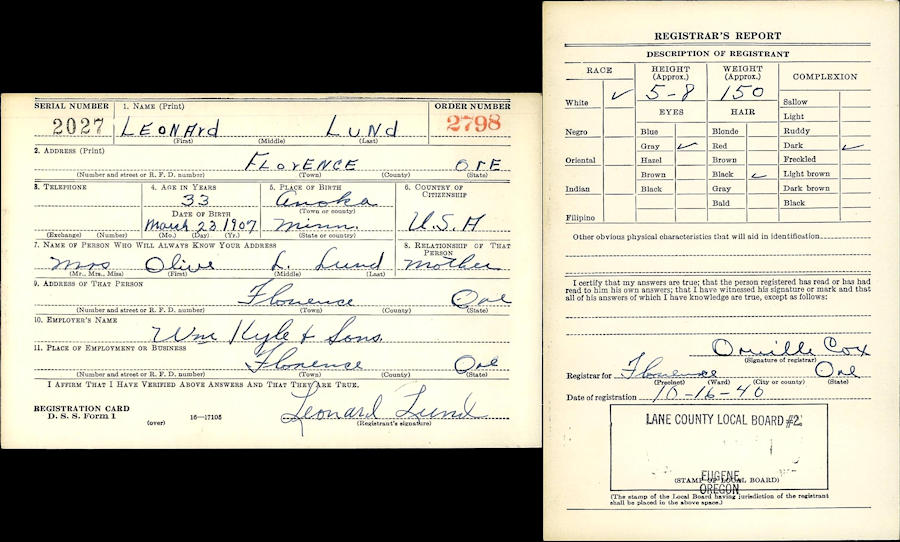 SERIAL NUMBER 1. NAME (Print) ORDER NUMBER
2027 LEONArd LUNd 2798
(First) (Middle) (Last)
2. ADDRESS (Print)
FLORENCE OrE
(Number and street or R. F. D. number) (Town) (County) (State)
3. TELEPHONE 4. AGE IN YEARS 5. PLACE OF BIRTH 6. COUNTRY OF CITIZENSHIP
33 Anoka
(Town or county)
DATE OF BIRTH
March 23 1907 Minn. U.S.A
(Exchange) (Number) (Mo.) (Day) (Yr.) (State or country)
7. NAME OF PERSON WHO WILL ALWAYS KNOW YOUR ADDRESS 8. RELATIONSHIP OF THAT PERSON
Mrs Olive L. Lund Mother
(Mr., Mrs., Miss) (First) (Middle) (Last)
9. ADDRESS OF THAT PERSON
Florence Ore
(Number and street or R. F. D. number) (Town) (County) (State)
10. EMPLOYER'S NAME
Wm Kyle & Sons.
11. PLACE OF EMPLOYMENT OR BUSINESS
Florence Ore
(Number and street or R. F. D. number) (Town) (County) (State)
I AFFIRM THAT I HAVE VERIFIED ABOVE ANSWERS AND THAT THEY ARE TRUE.
REGISTRATION CARD
D. S. S. Form 1 16—17105 Leonard Lund
(over) (Registrant's signature)
REGISTRAR'S REPORT
DESCRIPTION OF REGISTRANT
RACE HEIGHT (Approx.) WEIGHT (Approx.) COMPLEXION
White ✓ 5-8 150 Sallow
EYES HAIR Light
Negro Blue Blonde Ruddy
Gray ✓ Red Dark ✓
Oriental Hazel Brown Freckled
Brown Black ✓ Light brown
Indian Black Gray Dark brown
Bald Black
Filipino
Other obvious physical characteristics that will aid in identification
I certify that my answers are true; that the person registered has read or has had
read to him his own answers; that I have witnessed his signature or mark and that
all of his answers of which I have knowledge are true, except as follows:
Orville Cox
(Signature of registrar)
Registrar for Florence Ore
(Precinct) (Ward) (City or county) (State)
Date of registration 10-16-40
LANE COUNTY LOCAL BOARD #2
EUGENE
(STAMP OF LOCAL BOARD)
OREGON
(The stamp of the Local Board having jurisdiction of the registrant
shall be placed in the above space.)